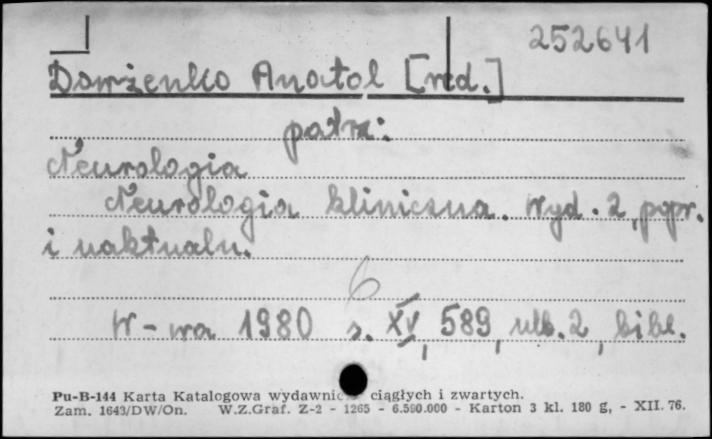 252641
Dowżenko Anatol [red.]
patrz:
Neurologia
Neurologia kliniczna. Wyd. 2, popr.
i uaktualn.
6
W-wa 1980 s. XV, 589, nlb. 2, bibl.
Pu-B-144 Karta Katalogowa wydawnic ciągłych i zwartych.
Zam. 1643/DW/On. W.Z.Graf. Z-2 - 1265 - 6.590.000 - Karton 3 kl. 180 g, - XII. 76.